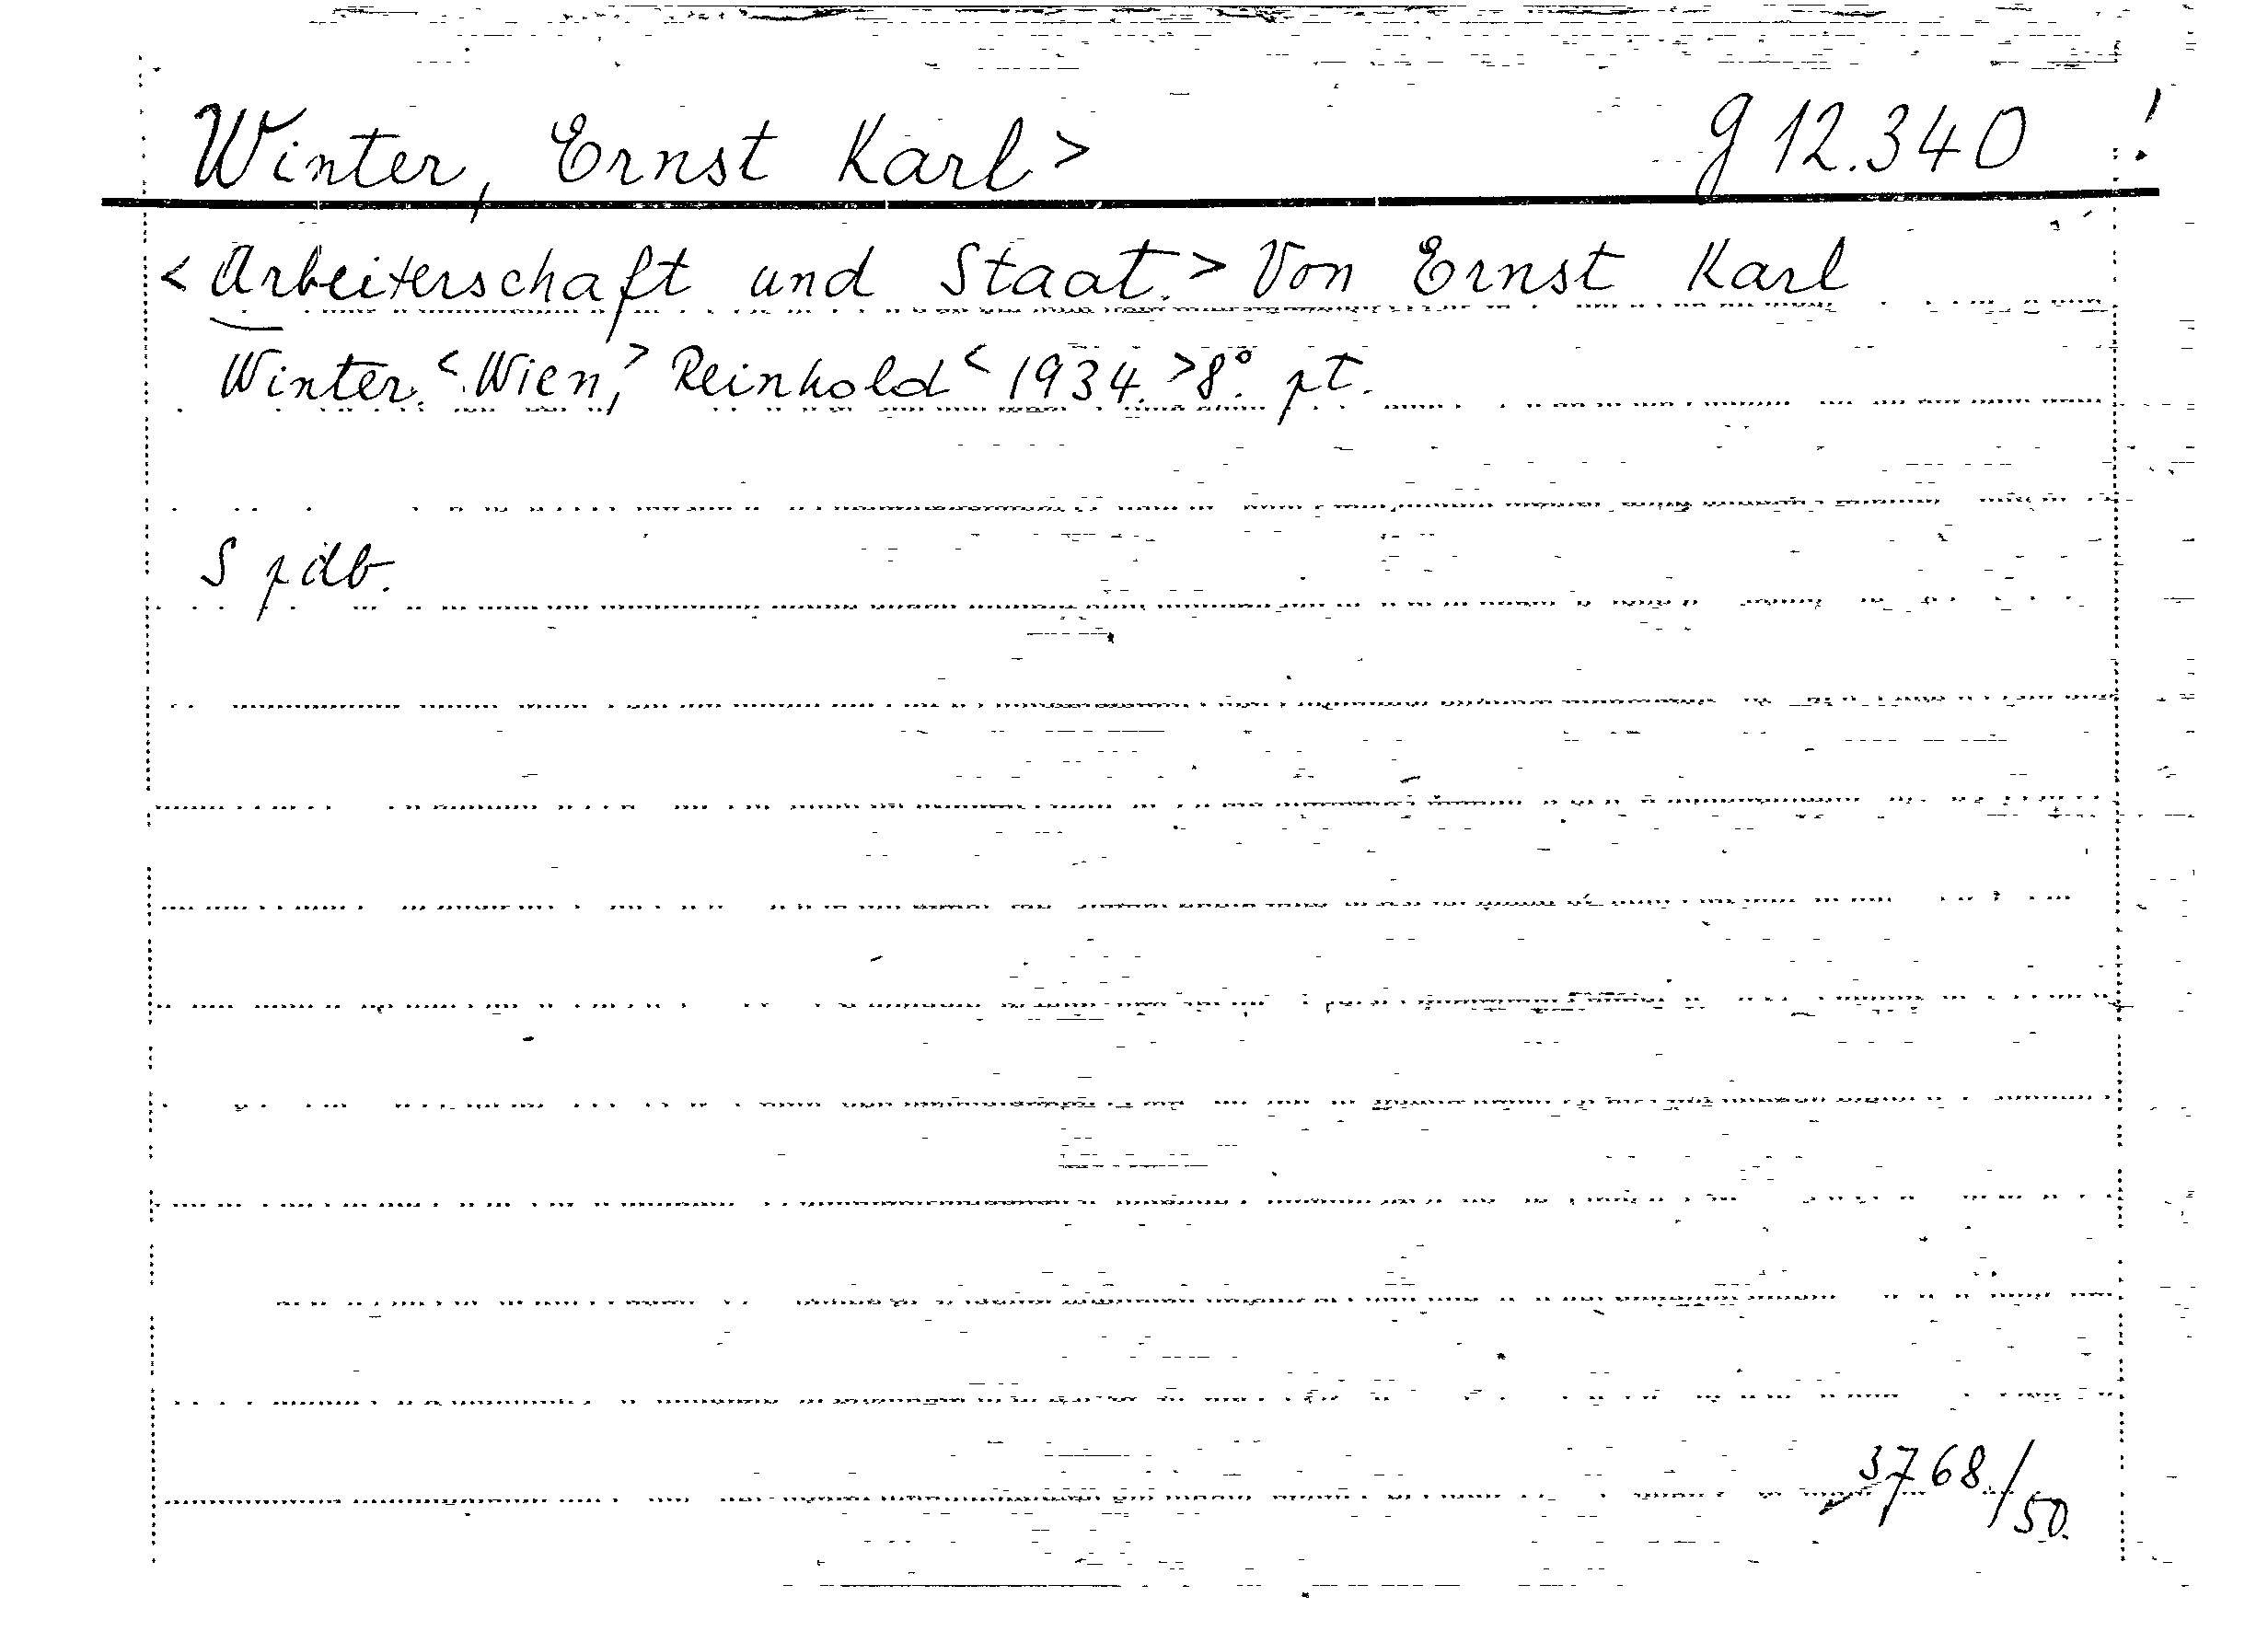 Winter, Ernst Karl> g 12.340 !
<Arbeiterschaft und Staat.> Von Ernst Karl
Winter. <Wien,> Reinhold <1934.> 8°. pt.
S pdb.
3768./50.